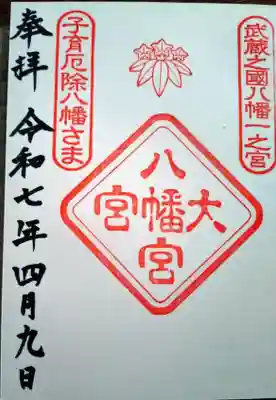 武蔵之國八幡一之宮
大宮八幡宮
子育厄除八幡さま
奉拝 令和七年四月九日